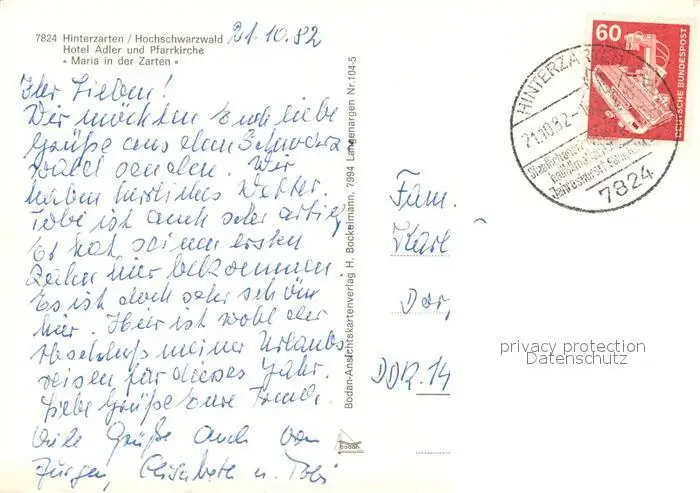 7824 Hinterzarten / Hochschwarzwald
Hotel Adler und Pfarrkirche
« Maria in der Zarten »
21.10.82
Ihr Lieben!
Wir möchten Euch liebe
Grüße aus dem Schwarz
wald senden. Wir
haben herrliches Wetter.
Tobi ist auch sehr artig
Es hat seinen ersten
Zahn hier bekommen
Es ist doch sehr schön
hier. Hier ist wohl der
Abschluß meiner Urlaubs
reisen für dieses Jahr.
Liebe Grüße Eure Trudi.
Viele Grüße auch von
Jürgen, Elisabeth u. Tobi
Bodan-Ansichtskartenverlag H. Bockelmann, 7994 Langenargen Nr. 104-5
bodan
Fam.
Karl
Dor,
DDR. 14
60
DEUTSCHE BUNDESPOST
HINTERZARTEN
21.10.82-1
7824
privacy protection
Datenschutz